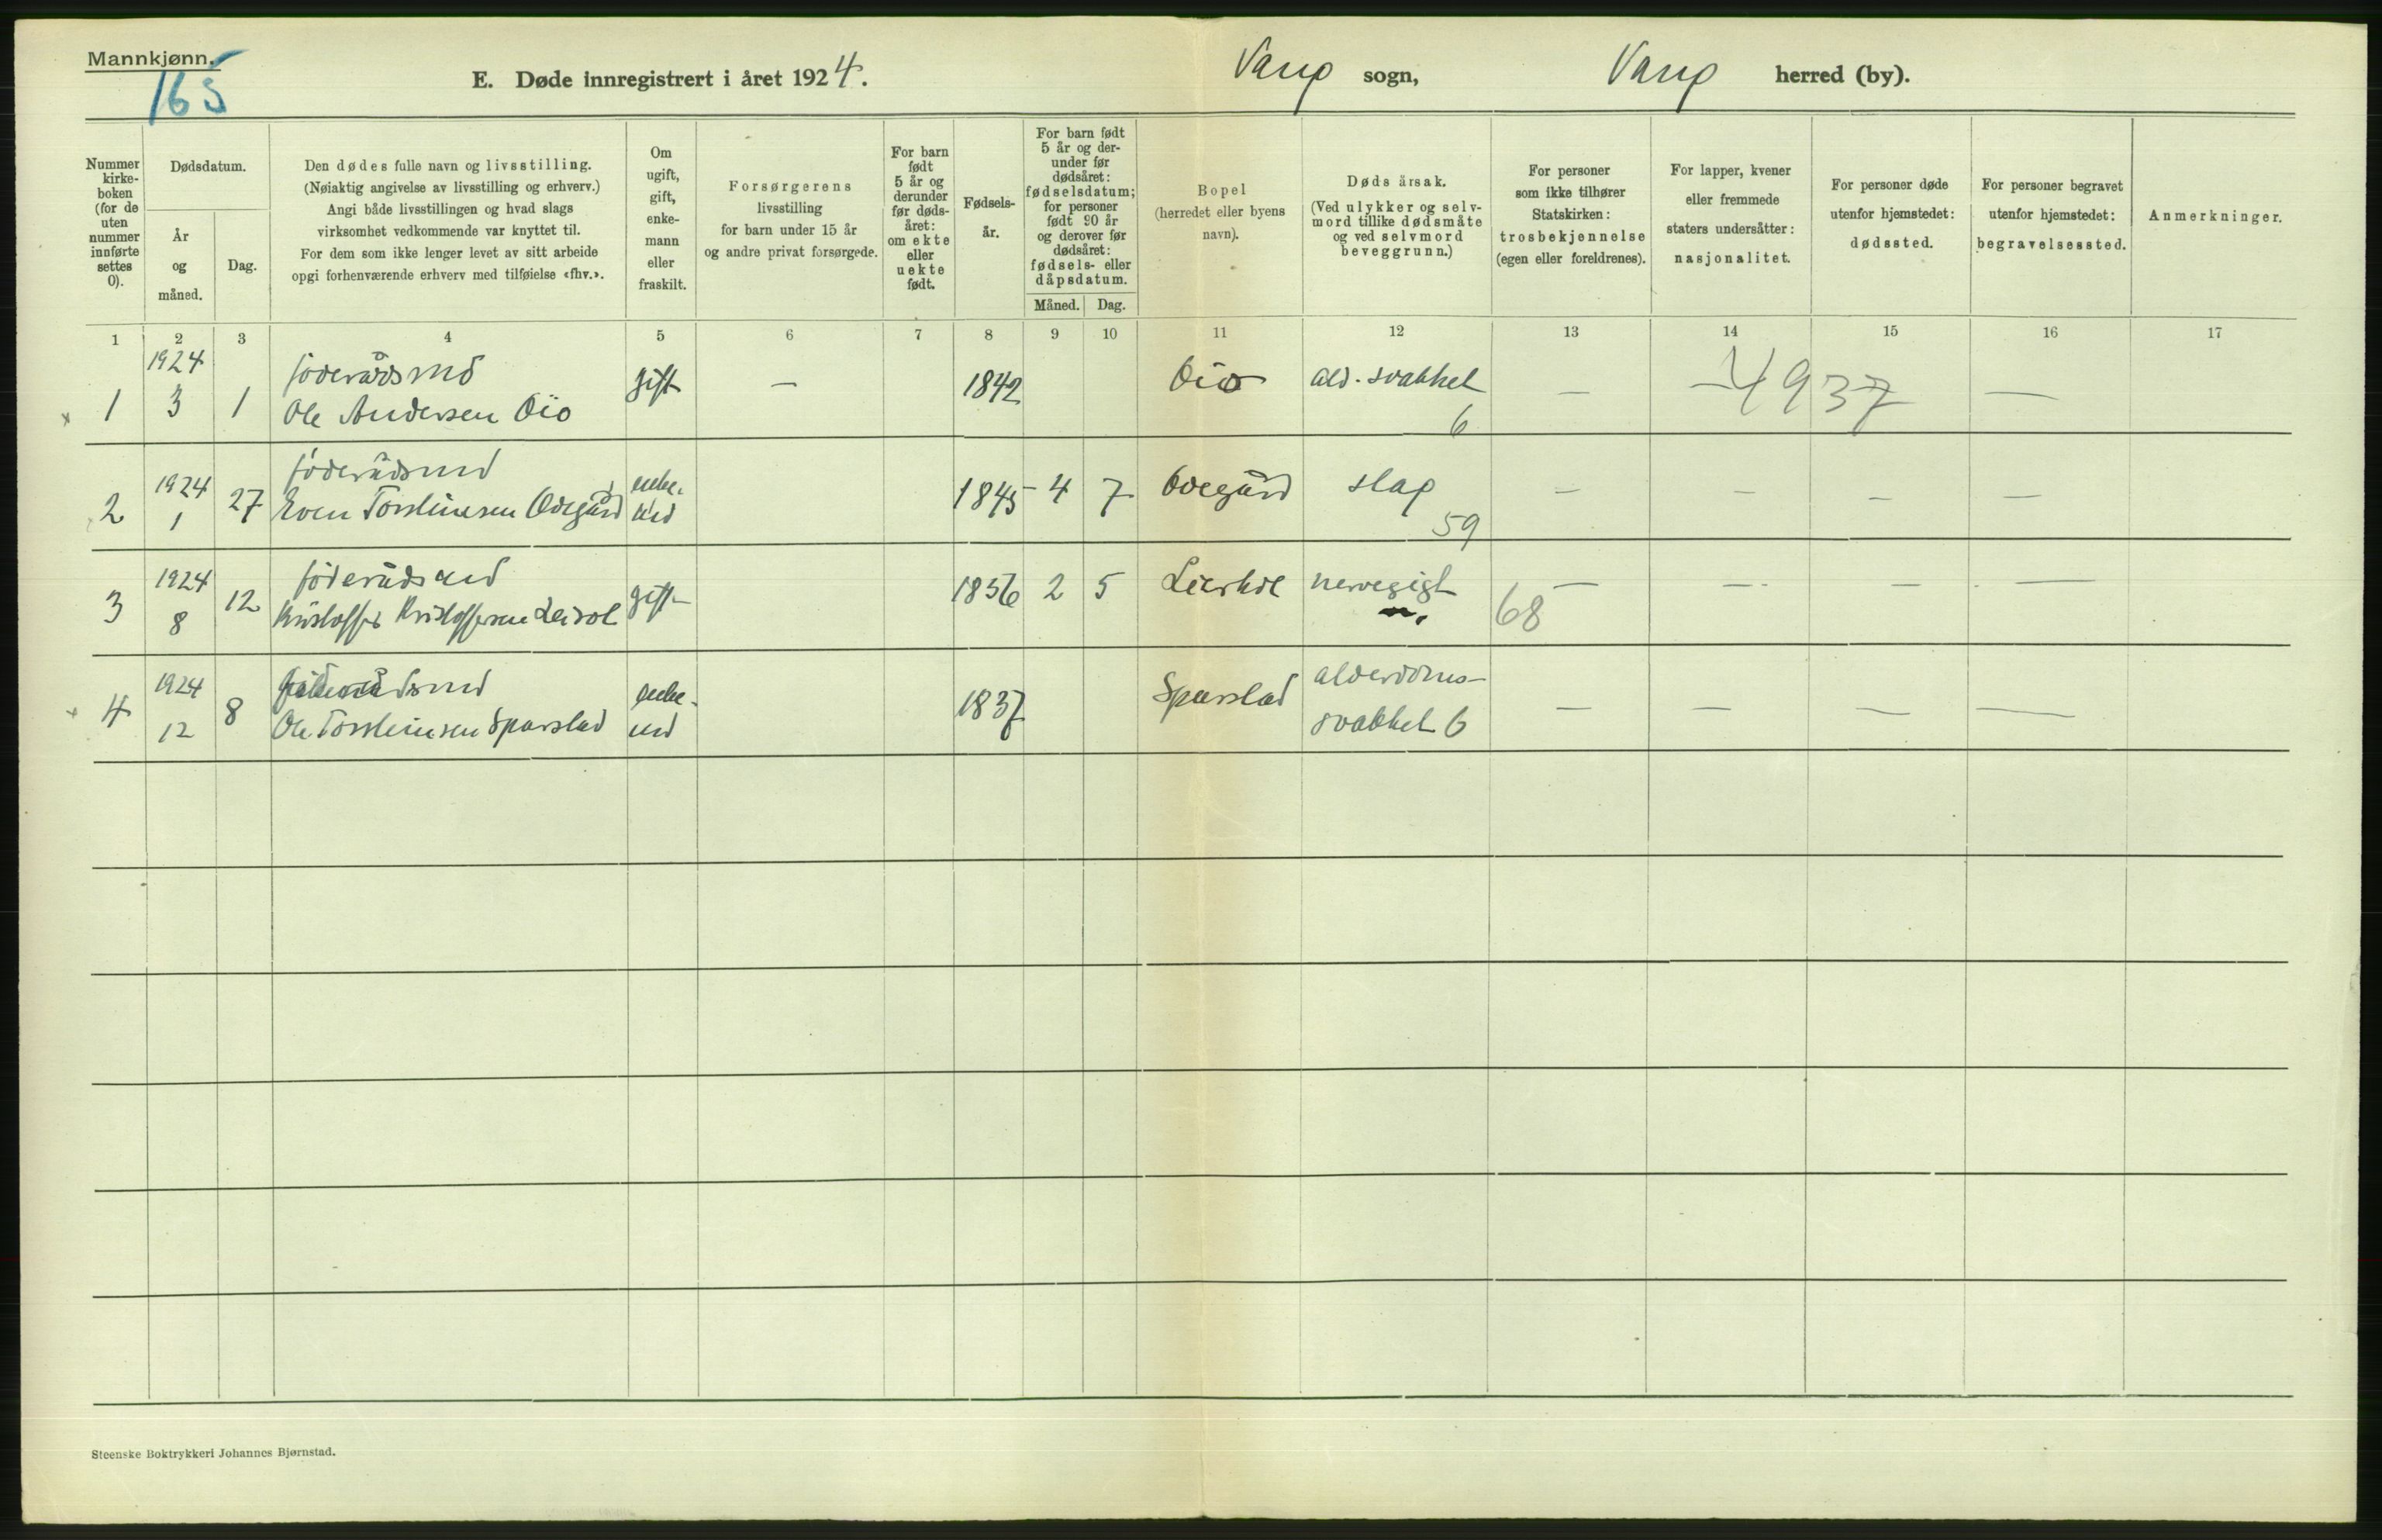 Mannkjønn.
165
E. Døde innregistrert i året 1924.
Vang sogn, Vang herred (by).
Nummer kirke-boken (for de uten nummer innførte settes 0).
Dødsdatum.
År og måned.
Dag.
Den dødes fulle navn og livsstilling.
(Nøiaktig angivelse av livsstilling og erhverv.)
Angi både livsstillingen og hvad slags
virksomhet vedkommende var knyttet til.
For dem som ikke lenger levet av sitt arbeide
opgi forhenværende erhverv med tilføielse «fhv.».
Om ugift, gift, enke-mann eller fraskilt.
Forsørgerens
livsstilling
for barn under 15 år
og andre privat forsørgede.
For barn født 5 år og derunder før døds-året: om ekte eller uekte født.
Fødsels-år.
For barn født 5 år og der-under før dødsåret: fødselsdatum; for personer født 90 år og derover før dødsåret: fødsels- eller dåpsdatum.
Måned. Dag.
Bopel
(herredet eller byens
navn).
Dødsårsak.
(Ved ulykker og selv-
mord tillike dødsmåte
og ved selvmord
beveggrunn.)
For personer
som ikke tilhører
Statskirken:
trosbekjennelse
(egen eller foreldrenes).
For lapper, kvener
eller fremmede
staters undersåtter:
nasjonalitet.
For personer døde
utenfor hjemstedet:
dødssted.
For personer begravet
utenfor hjemstedet:
begravelsessted.
Anmerkninger.
1 2 3 4 5 6 7 8 9 10 11 12 13 14 15 16 17
1924 föderådsmd
1 3 1 Ole Andersen Öio gift — 1842 Öio ald. svakhet 6 — —4937 —
1924 föderådsmd enke-
2 1 27 Even Torsteinsen Ödegård md 1845 4 7 Ödegård slag 59 — — — —
1924 föderådsmd
3 8 12 Kristoffer Kristoffersen gift 1856 2 5 nervegigt 68 — — — —
1924 föderådsmd enke- alderdoms-
4 12 8 Ole Torsteinsen Sparstad md 1837 Sparstad svakhet 6 — — — —
Steenske Boktrykkeri Johannes Bjørnstad.